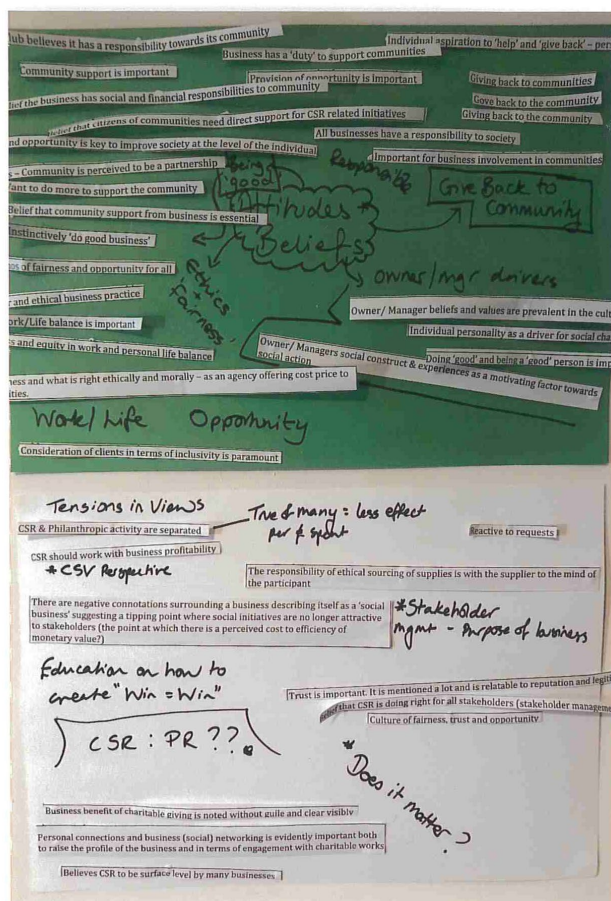 lub believes it has a responsibility towards its community
Individual aspiration to 'help' and 'give back' – per
Business has a 'duty' to support communities
Community support is important
Provision of opportunity is important
Giving back to communities
lief the business has social and financial responsibilities to community
Gove back to the community
Belief that citizens of communities need direct support for CSR related initiatives
Giving back to the community
All businesses have a responsibility to society
nd opportunity is key to improve society at the level of the individual
Important for business involvement in communities
s - Community is perceived to be a partnership
being
'good'
Responsible
Give Back to
Community
ant to do more to support the community
Attitudes *
Beliefs
Belief that community support from business is essential
Instinctively 'do good business'
of fairness and opportunity for all
Ethics
+
fairness
owner/mgr drivers
r and ethical business practice
Owner/ Manager beliefs and values are prevalent in the cult
ork/Life balance is important
Individual personality as a driver for social cha
s and equity in work and personal life balance
Owner/ Managers social construct & experiences as a motivating factor towards
social action
Doing 'good' and being a 'good' person is imp
ness and what is right ethically and morally – as an agency offering cost price to
ities.
Work/Life Opportunity
Consideration of clients in terms of inclusivity is paramount
Tensions in Views
CSR & Philanthropic activity are separated
many = less effect
per £ spent
Reactive to requests
CSR should work with business profitability
* CSV Perspective
The responsibility of ethical sourcing of supplies is with the supplier to the mind of
the participant
There are negative connotations surrounding a business describing itself as a 'social
business' suggesting a tipping point where social initiatives are no longer attractive
to stakeholders (the point at which there is a perceived cost to efficiency of
monetary value?)
*Stakeholder
mgmt - Purpose of business
Education on how to
create "Win = Win"
Trust is important. It is mentioned a lot and is relatable to reputation and legiti
Belief that CSR is doing right for all stakeholders (stakeholder manageme
Culture of fairness, trust and opportunity
CSR : PR ??
* Does it matter?
Business benefit of charitable giving is noted without guile and clear visibly
Personal connections and business (social) networking is evidently important both
to raise the profile of the business and in terms of engagement with charitable works
Believes CSR to be surface level by many businesses